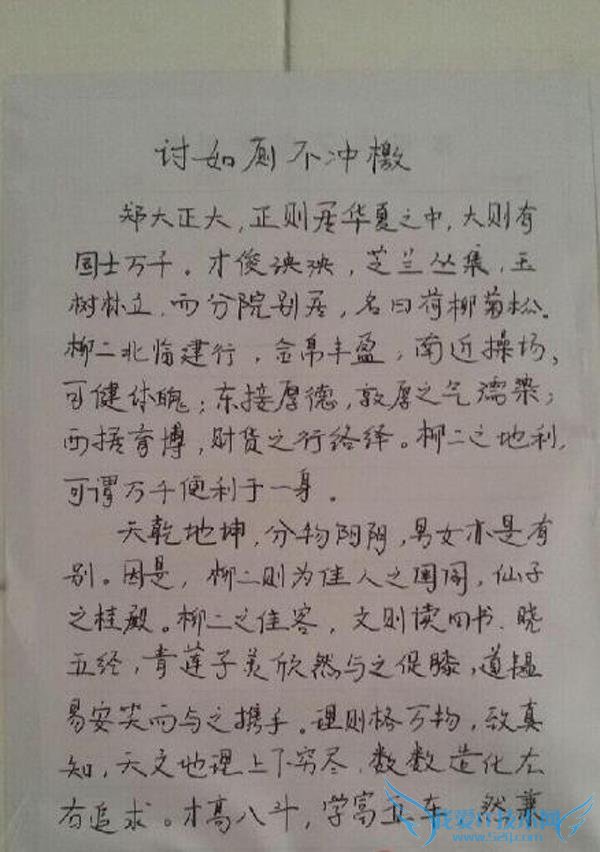 讨如厕不冲檄
郑大正大，正则居华夏之中，大则有
国士万千。才俊泱泱，芝兰丛集，玉
树林立，而分院别居，名曰荷柳菊松。
柳二北临建行，金帛丰盈，南近操场，
可健体魄；东接厚德，敦厚之气濡染；
西接育博，财货之行络绎。柳二之地利，
可谓万千便利于一身。
天乾地坤，分物阴阳，男女亦是有
别。因是，柳二则为佳人之闺阁，仙子
之桂殿。柳二之佳客，文则读四书、晓
五经，青莲子美欣然与之促膝，道韫
易安笑而与之携手。理则格万物，致真
知，天文地理上下穷尽，数数造化左
右追求。才高八斗，学富五车，然